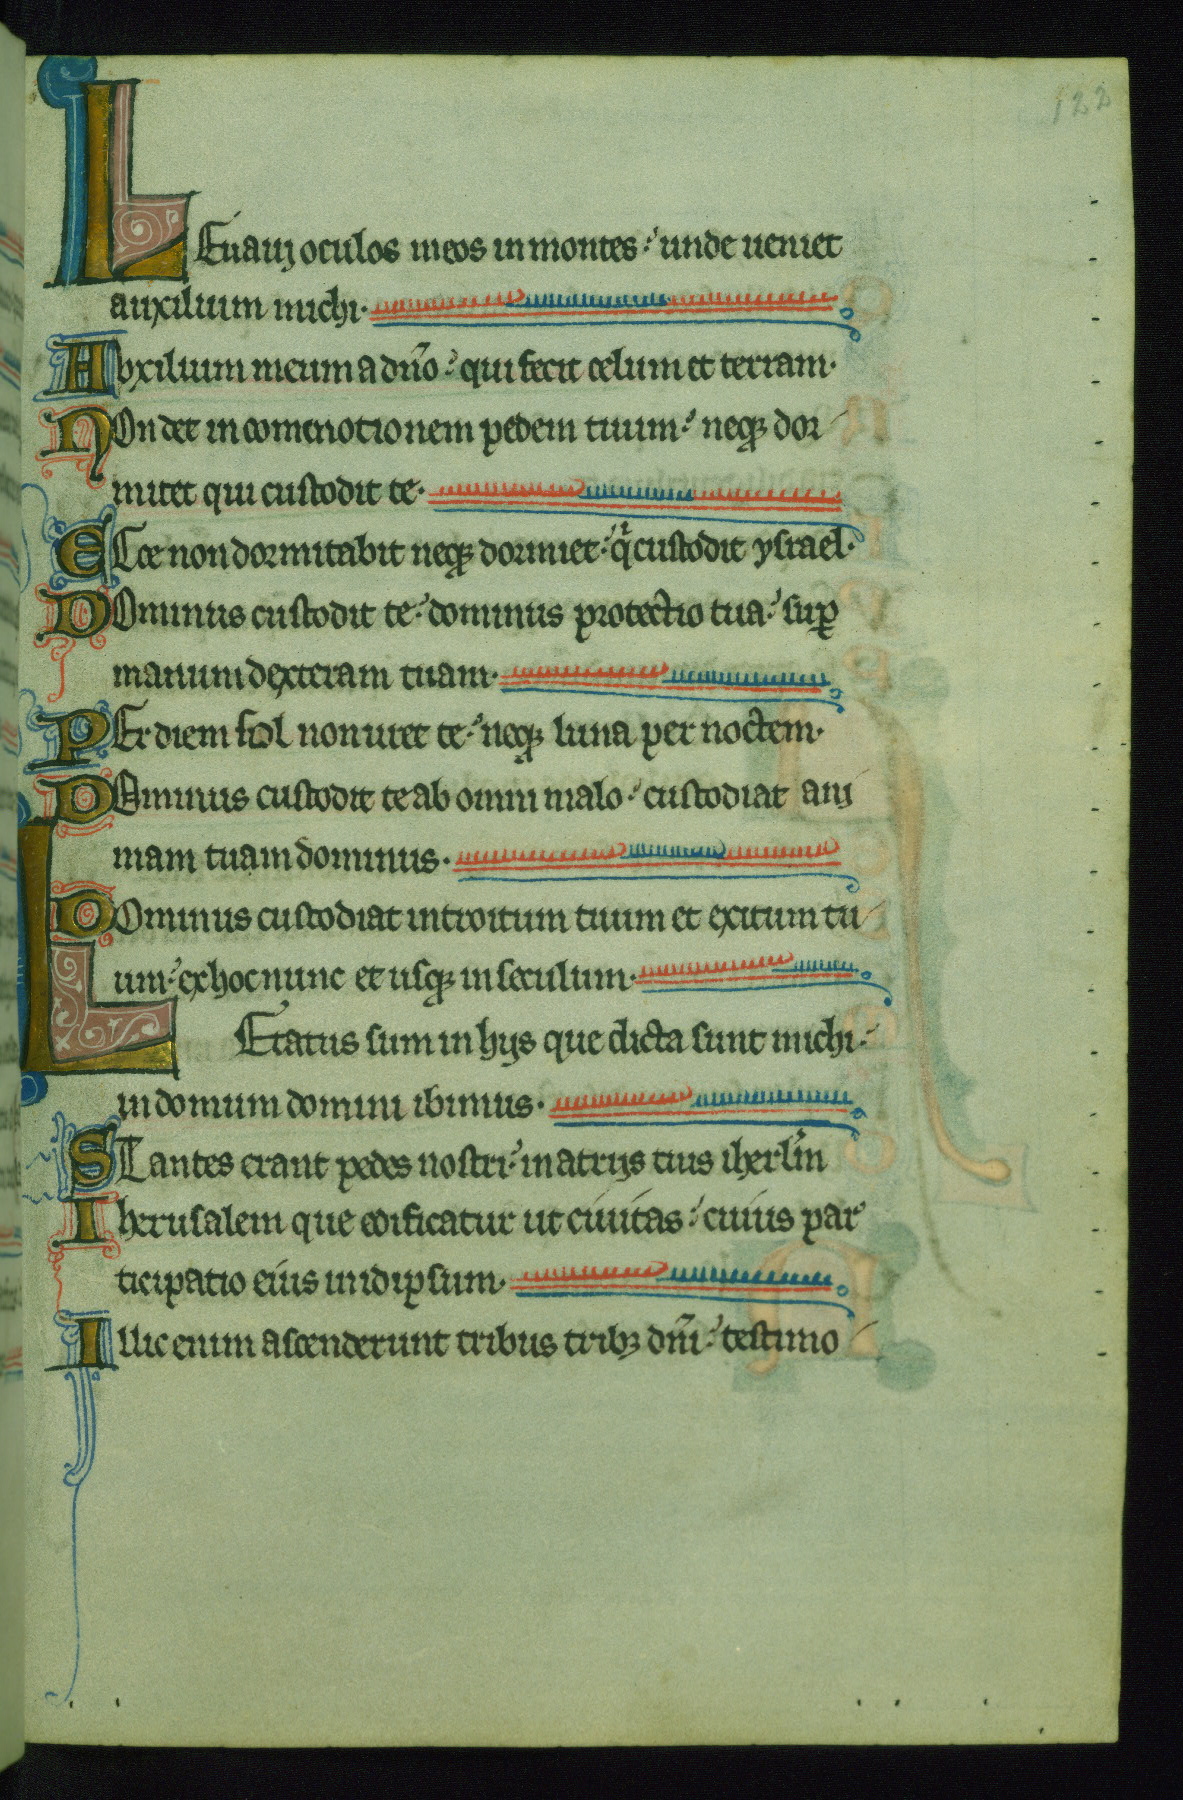 122
LEuaui oculos meos in montes: unde ueniet
auxilium michi.
Avxilium meum a dño: qui fecit celum et terram.
NOn det in comenotionem pedem tuum: neqꝫ dor
mitet qui custodit te.
ECce non dormitabit neqꝫ dormiet: qͥ custodit ysrael.
DOminus custodit te: dominus protectio tua: suꝑ
manum dexteram tuam.
PEr diem sol non uret te: neqꝫ luna per noctem.
DOminus custodit te ab omni malo: custodiat ani
mam tuam dominus.
DOminus custodiat introitum tuum et exitum tu
um: ex hoc nunc et usqꝫ in seculum.
LEtatus sum in hijs que dicta sunt michi:
in domum domini ibimus.
STantes erant pedes nostri: in atrijs tuis iherlm̃
Iherusalem que edificatur ut ciuitas: cuius par
ticipatio eius in idipsum.
Illic enim ascenderunt tribus tribꝫ dñi: testimo